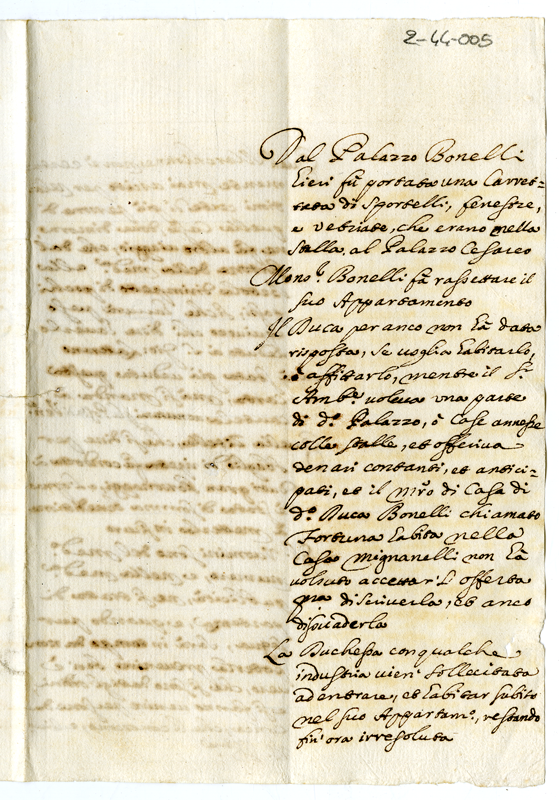 2-44-005
Dal Palazzo Bonelli
Hieri fù portata una Carret=
tata di Sportelli, fenestre,
e vetriate, che erano nella
Stalla, al Palazzo Cesareo
Mons.r Bonelli fà rassettare il
suo Appartamento
Il Duca per anco non hà data
risposta, se voglia habitarlo,
ò affittarlo, mentre il S.r
Amb.re voleva una parte
di d.o Palazzo, ò Case annesse
colle stalle, et offeriva
denari contanti, et antici=
pati, et il m̃ro di Casa di
d.o Duca Bonelli chiamato
Fortuna habita nella
Casa Mignanelli non hà
voluto accettar l'offerta
ma discriverla, et anco
dissuaderla
La Duchessa con qualche
industria vien sollecitata
ad entrare, et habitar subito
nel suo Appartam.o, restando
fin' ora irresoluta